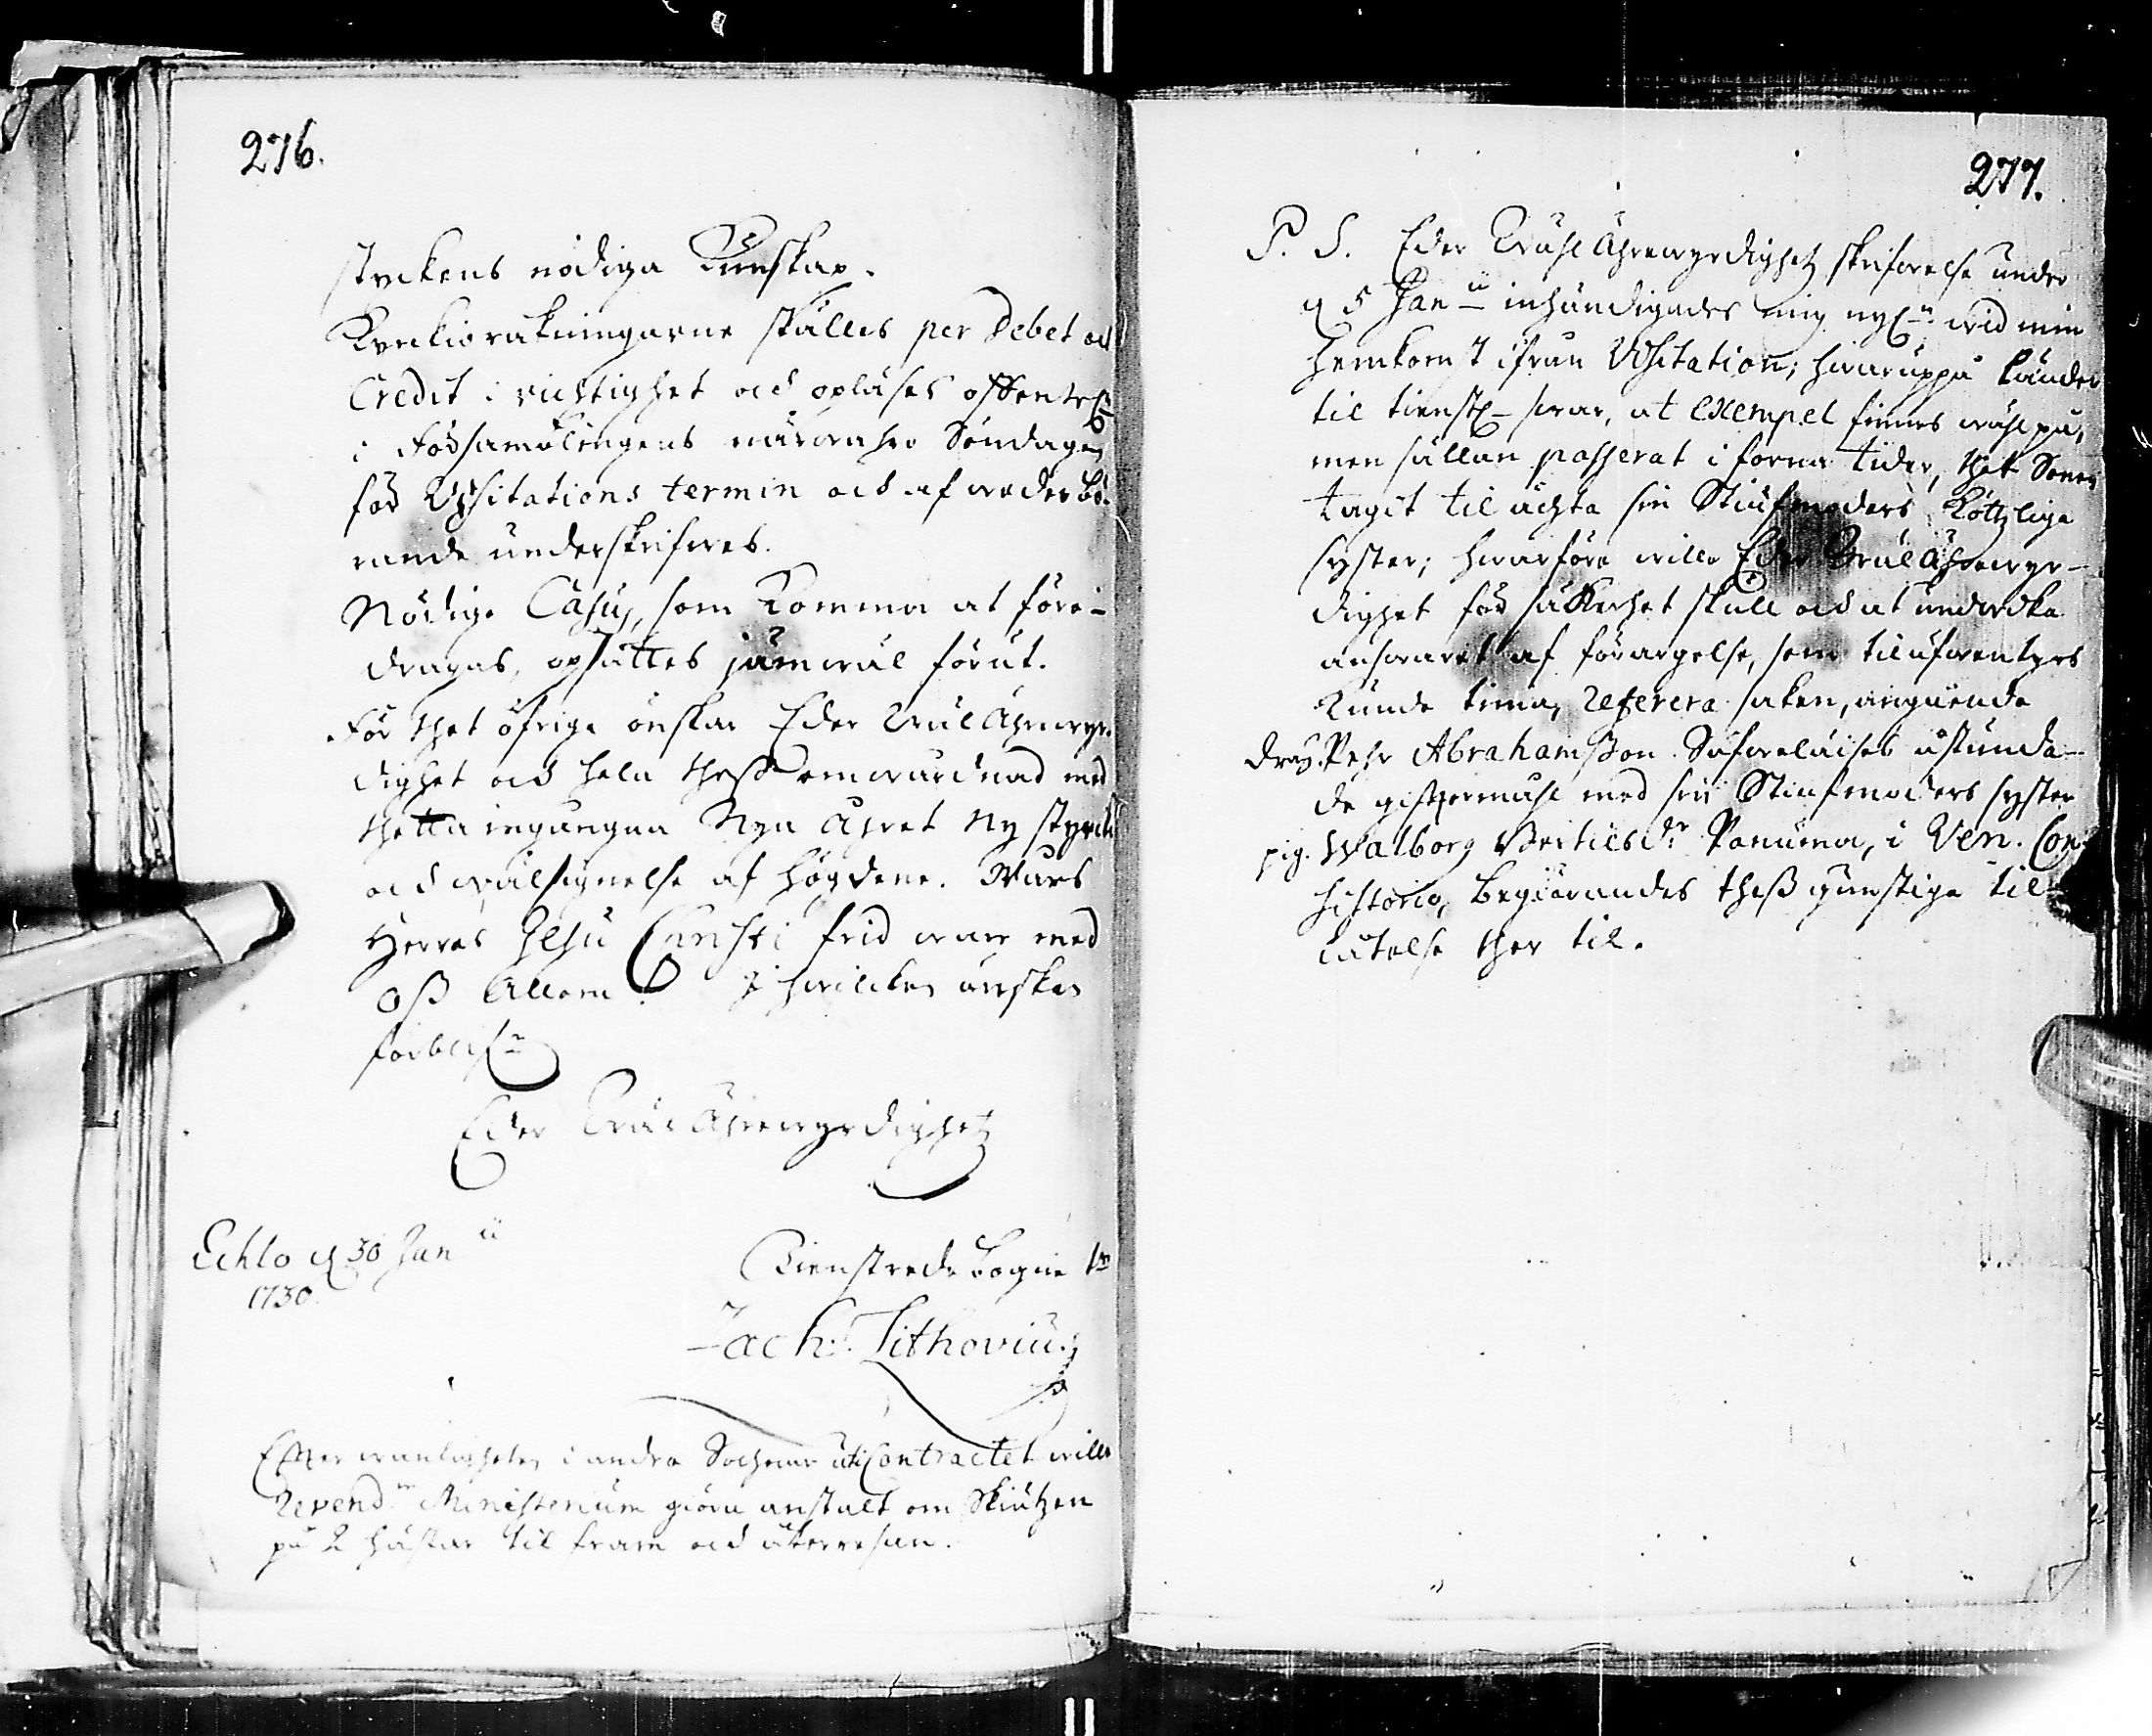 276.
styckens nödiga Kunskap.
Kyrkioräkningarne ställes per Debet och
Credit i richtighet och opläses offentel.
i Församblingens närwahro Söndagen
för Visitations termin och af wederbö-
rande underskrifwes.
Nödige Casus, som komma at före-
dragas, opsättes jämwäl förut.
För thet öfrige önskar Eder WälÄhrewyr-
dighet och hela theß omwårdnad med
thetta ingångna Nya Åhret Ny styrcka
och wälsignelse af högdene. Wårs
Herras Jesu Christi frid ware med
oß Allom! I hwilcken önskan
förblifr
Eder WälÄhrewyrdighetz
Echlo d 30 Janu
1730.
Tienstredebogne br
Zach: Lithovius
Efter wanligheten i andra Sochnar uti Contractet wille
Revend: Ministerium giöra anstalt om Skiutzen
på 2 hästar til fram och återresan.
277.
P. S. Eder WählÄhrewyrdighetz skrifwelse under
d 5 Janu inhändigades mig nyl. wid min
hemkomst ifrån Visitation; hwaruppå länder
til tienstl. swar, at exempel finnes wähl på,
men sällan passerat i forna tider, thet Sonen
tagit til ächta sin Stiufmoders kötzlige
syster; hwarföre wille Eder WälÄhrewyr-
dighet för säkerhet skull och at undwika
answaret af förargelse, som tiläfwentyrs
kunde tima, referera saken, angående
drag. Pehr Abrahamßon Säfwelaises åstunda-
de gifftermåhl med sin Stiufmoders syster
pig. Walborg Bertilsdr Panuma, i Ven. Con-
sistorio, begiärandes theß gunstige til-
låtelse ther til.